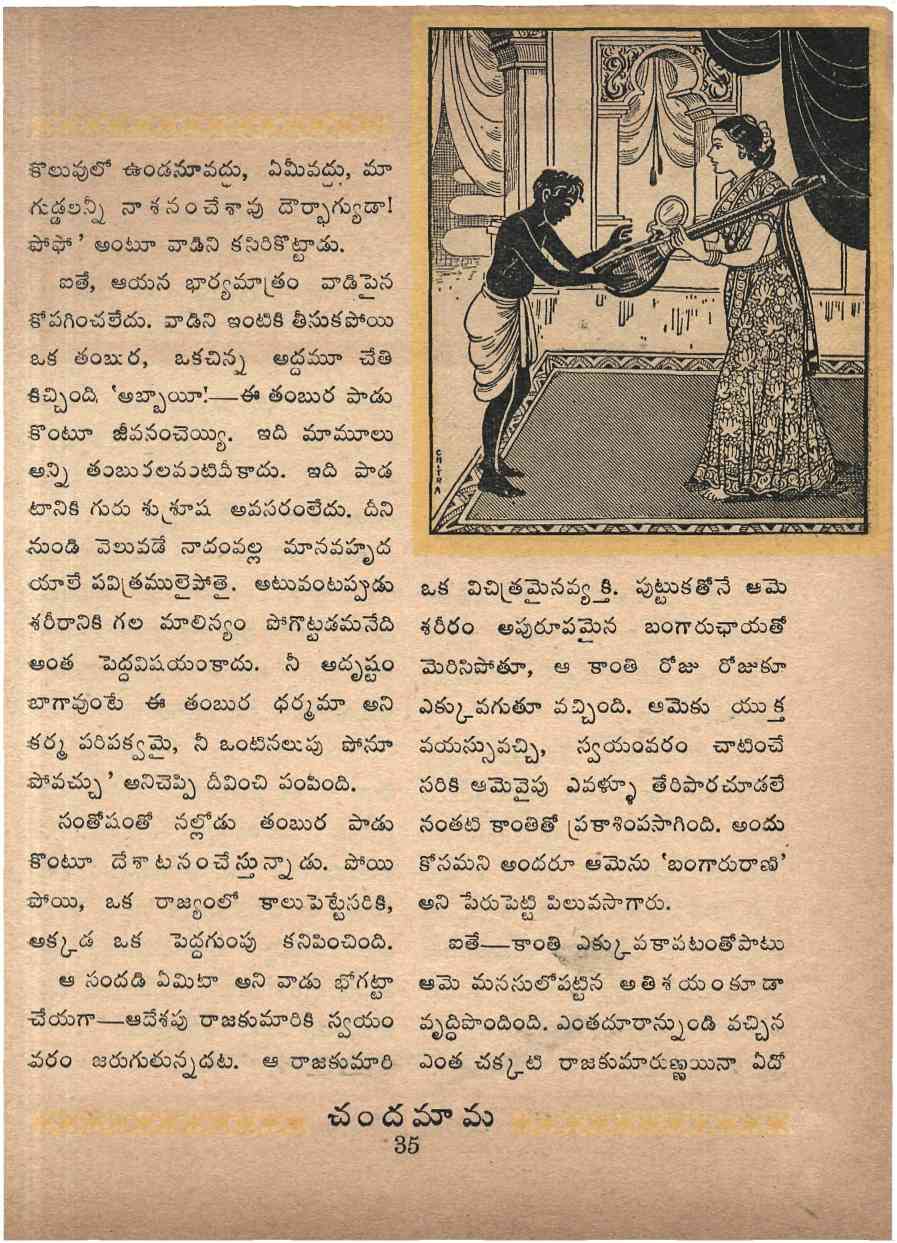 కొలువులో ఉండనూవద్దు, ఏమీవద్దు, మా
గుడ్డలన్నీ నాశనంచేశావు దౌర్భాగ్యుడా!
పోఫో' అంటూ వాడిని కసిరికొట్టాడు.
ఐతే, ఆయన భార్యమాత్రం వాడిపైన
కోపగించలేదు. వాడిని ఇంటికి తీసుకపోయి
ఒక తంబుర, ఒకచిన్న అద్దమూ చేతి
కిచ్చింది. 'అబ్బాయీ!—ఈ తంబుర పాడు
కొంటూ జీవనంచెయ్యి. ఇది మామూలు
అన్ని తంబురలవంటివీకాదు. ఇది పాడ
టానికి గురు శుశ్రూష అవసరంలేదు. దీని
నుండి వెలువడే నాదంవల్ల మానవహృద
యాలే పవిత్రములైపోతై. అటువంటప్పుడు
శరీరానికి గల మాలిన్యం పోగొట్టడమనేది
అంత పెద్దవిషయంకాదు. నీ అదృష్టం
బాగావుంటే ఈ తంబుర ధర్మమా అని
కర్మ పరిపక్వమై, నీ ఒంటినలుపు పోనూ
పోవచ్చు' అనిచెప్పి దీవించి పంపింది.
సంతోషంతో నల్లోడు తంబుర పాడు
కొంటూ దేశాటనంచేస్తున్నాడు. పోయి
పోయి, ఒక రాజ్యంలో కాలుపెట్టేసరికి,
అక్కడ ఒక పెద్దగుంపు కనిపించింది.
ఆ సందడి ఏమిటా అని వాడు భోగట్టా
చేయగా—ఆదేశపు రాజకుమారికి స్వయం
వరం జరుగుతున్నదట. ఆ రాజకుమారి
CHITRA
ఒక విచిత్రమైనవ్యక్తి. పుట్టుకతోనే ఆమె
శరీరం అపురూపమైన బంగారుఛాయతో
మెరిసిపోతూ, ఆ కాంతి రోజు రోజుకూ
ఎక్కువగుతూ వచ్చింది. ఆమెకు యుక్త
వయస్సువచ్చి, స్వయంవరం చాటించే
సరికి ఆమెవైపు ఎవళ్ళూ తేరిపారచూడలే
నంతటి కాంతితో ప్రకాశింపసాగింది. అందు
కోసమని అందరూ ఆమెను 'బంగారురాణి'
అని పేరుపెట్టి పిలువసాగారు.
ఐతే—కాంతి ఎక్కువకావటంతోపాటు
ఆమె మనసులోపట్టిన అతిశయంకూడా
వృద్ధిపొందింది. ఎంతదూరాన్నుండి వచ్చిన
ఎంత చక్కటి రాజకుమారుణ్ణయినా ఏదో
చందమామ
35